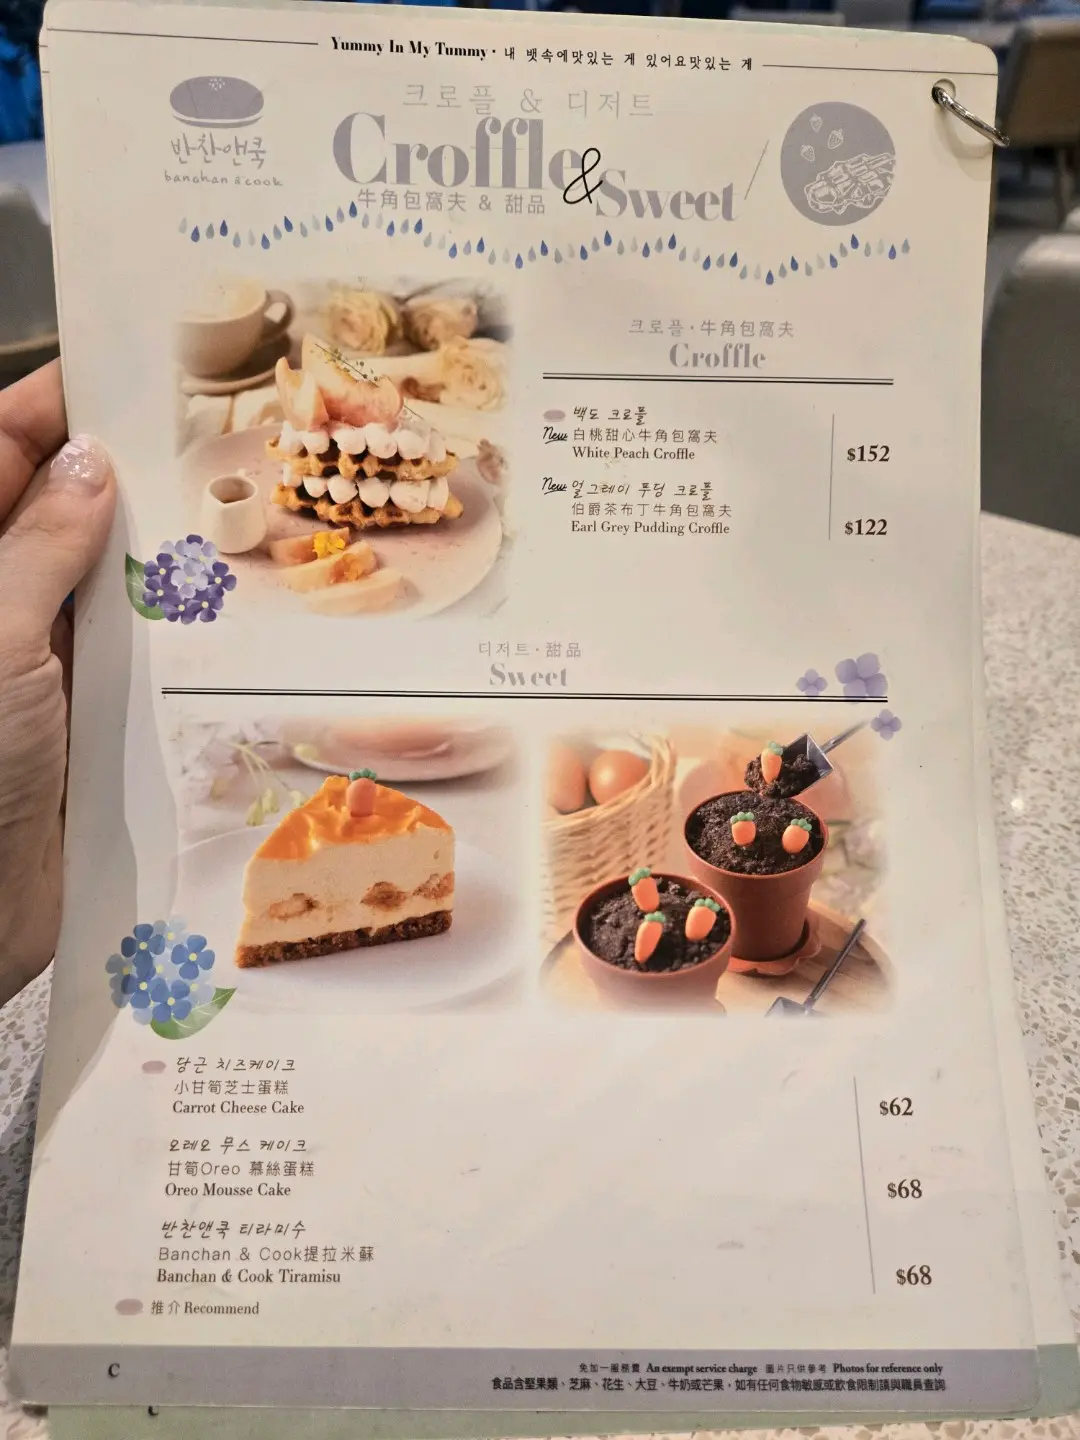 Yummy In My Tummy · 내 뱃속에맛있는 게 있어요맛있는 게
크로플 & 디저트
반찬앤쿡
banchan & cook
Croffle & Sweet
牛角包窩夫 & 甜品
크로플·牛角包窩夫
Croffle
백도 크로플
New 白桃甜心牛角包窩夫
White Peach Croffle
$152
New 얼그레이 푸딩 크로플
伯爵茶布丁牛角包窩夫
Earl Grey Pudding Croffle
$122
디저트·甜品
Sweet
당근 치즈케이크
小甘筍芝士蛋糕
Carrot Cheese Cake
$62
오레오 무스 케이크
甘筍Oreo 慕絲蛋糕
Oreo Mousse Cake
$68
반찬앤쿡 티라미수
Banchan & Cook提拉米蘇
Banchan & Cook Tiramisu
$68
推介 Recommend
C
免加一服務費 An exempt service charge 圖片只供參考 Photos for reference only
食品含堅果類、芝麻、花生、大豆、牛奶或芒果，如有任何食物敏感或飲食限制請與職員查詢